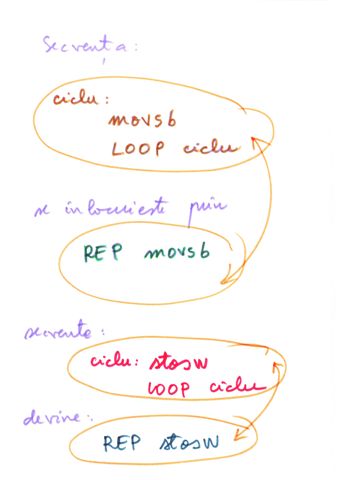 Secvența:
ciclu:
movsb
LOOP ciclu
se înlocuiește prin
REP movsb
secvența:
ciclu: stosw
LOOP ciclu
devine:
REP stosw